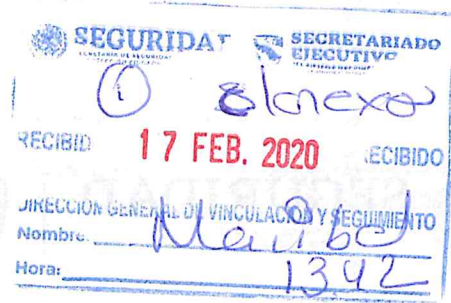 SEGURIDAD SECRETARIADO
EJECUTIVO
RECIBID 17 FEB. 2020 ECIBIDO
DIRECCIÓN GENERAL DE VINCULACIÓN Y SEGUIMIENTO
Nombre: Maribel
Hora: 1342